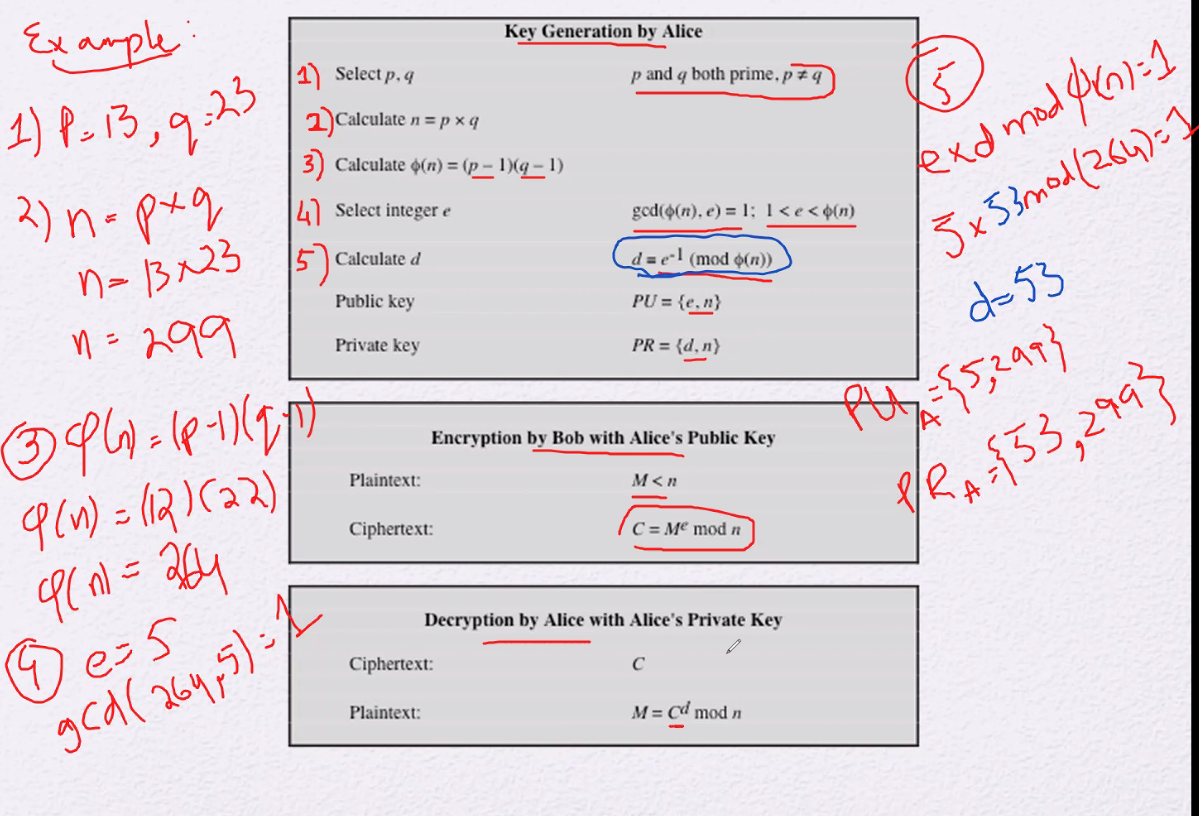 Example:
1) P = 13, q = 23
2) n = p×q
n = 13×23
n = 299
③ φ(n) = (p-1)(q-1)
φ(n) = (12)(22)
φ(n) = 264
④ e = 5
gcd(264,5) = 1
Key Generation by Alice
1) Select p, q p and q both prime, p ≠ q
2) Calculate n = p × q
3) Calculate ϕ(n) = (p − 1)(q − 1)
4) Select integer e gcd(ϕ(n), e) = 1; 1 < e < ϕ(n)
5) Calculate d d = e⁻¹ (mod ϕ(n))
Public key PU = {e, n}
Private key PR = {d, n}
Encryption by Bob with Alice's Public Key
Plaintext: M < n
Ciphertext: C = Mᵉ mod n
Decryption by Alice with Alice's Private Key
Ciphertext: C
Plaintext: M = Cᵈ mod n
⑤
e×d mod φ(n) = 1
5 × 53 mod (264) = 1
d = 53
PU_A = {5, 299}
PR_A = {53, 299}